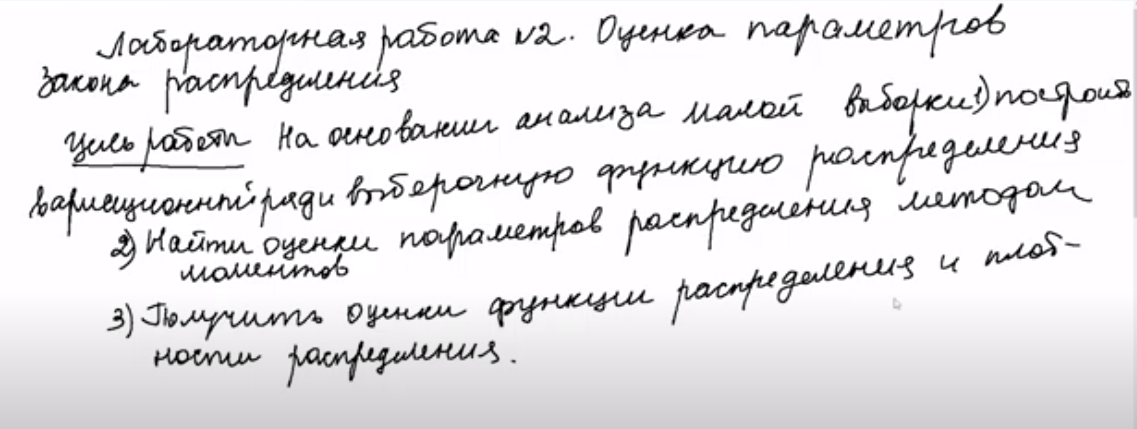 Лабораторная работа №2. Оценка параметров
закона распределения
Цель работы На основании анализа малой выборки 1) построить
вариационный ряд и выберочную функцию распределения
2) Найти оценки параметров распределения методом
моментов
3) Получить оценки функции распределения и плот-
ности распределения.